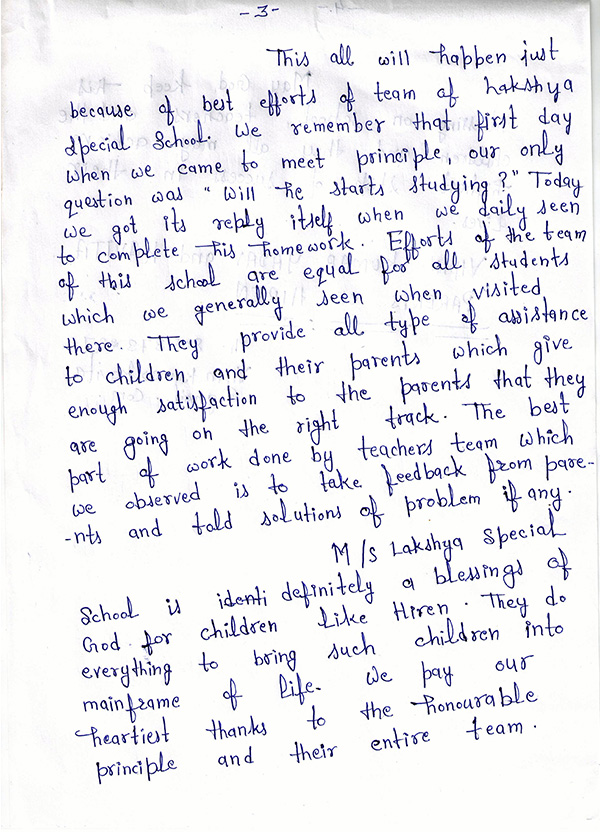 -3-
This all will happen just
because of best efforts of team of Lakshya
Special School. We remember that first day
when we came to meet principle, our only
question was "Will he starts studying?" Today
we got its reply itself when we daily seen
to complete his homework. Efforts of the team
of this school are equal for all students
which we generally seen when visited
there. They provide all type of assistance
to children and their parents which give
enough satisfaction to the parents that they
are going on the right track. The best
part of work done by teachers team which
we observed is to take feedback from pare-
-nts and told solutions of problem if any.
M/s Lakshya Special
School is identi definitely a blessings of
God for children like Hiren. They do
everything to bring such children into
mainframe of life. We pay our
heartiest thanks to the honourable
principle and their entire team.